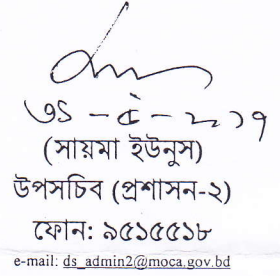 ৩১-৫-২০১৭
(সায়মা ইউনুস)
উপসচিব (প্রশাসন-২)
ফোন: ৯৫১৫৫১৮
e-mail: ds_admin2@moca.gov.bd